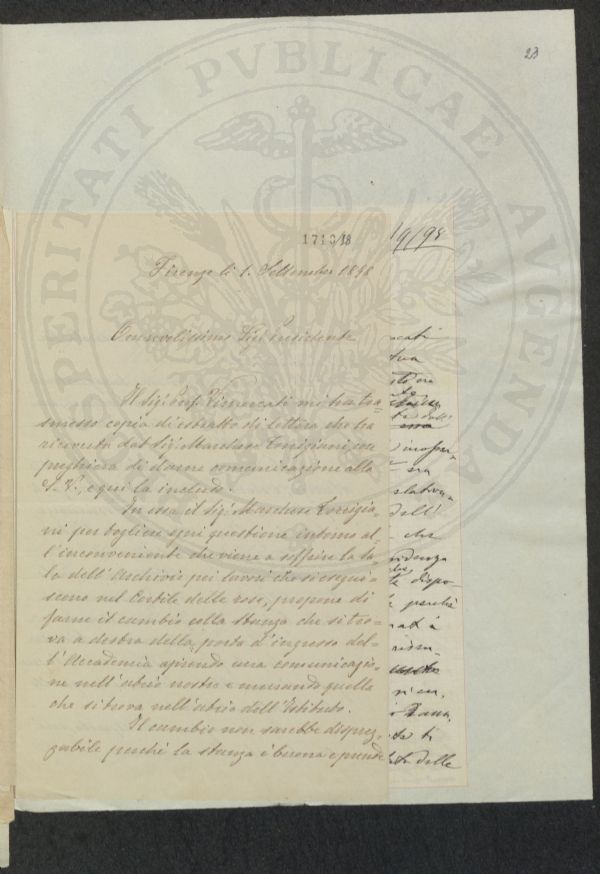 23
PROSPERITATI PVBLICAE AVGENDAE
1710/18
19/98
Firenze li 1. Settember 1898
Onorevolissimo Sig: Presidente
Il Sig: Prof. Vimercati mi ha tra=
smesso copia di estratto di lettera che ha
ricevuta dal Sig: Marchese Torrigiani con
preghiera di darne comunicazione alla
S. V., e qui la includo.
In essa il Sig: Marchese Torrigia-
ni per togliere ogni questione intorno al-
l'inconveniente che viene a soffrire la sa-
la dell'Archivio pei lavori che si esegui-
scono nel Cortile delle rose, propone di
farne il cambio colla stanza che si tro-
va a destra della porta d'ingresso del-
l'Accademia aprendo una comunicazio-
ne nell'atrio nostro e murando quella
che si trova nell'atrio dell'Istituto.
Il cambio non sarebbe disprez-
zabile perché la stanza è buona e prende
dell'
che
dispo
perchè
delle